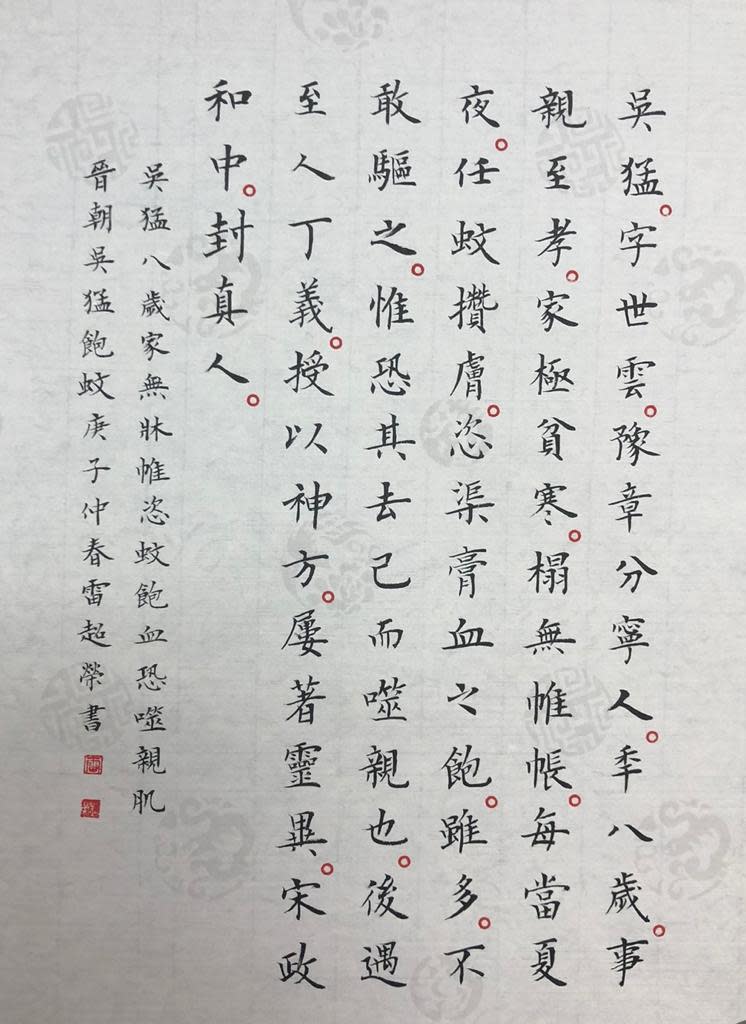 吳猛。字世雲。豫章分寧人。秊八歲。事
親至孝。家極貧寒。榻無帷帳。每當夏
夜。任蚊攢膚。恣渠膏血之飽。雖多。不
敢驅之。惟恐其去己而噬親也。後遇
至人丁義。授以神方。屢著靈異。宋政
和中。封真人。
吳猛八歲家無牀帷恣蚊飽血恐噬親肌
晉朝吳猛飽蚊庚子仲春雷超榮書